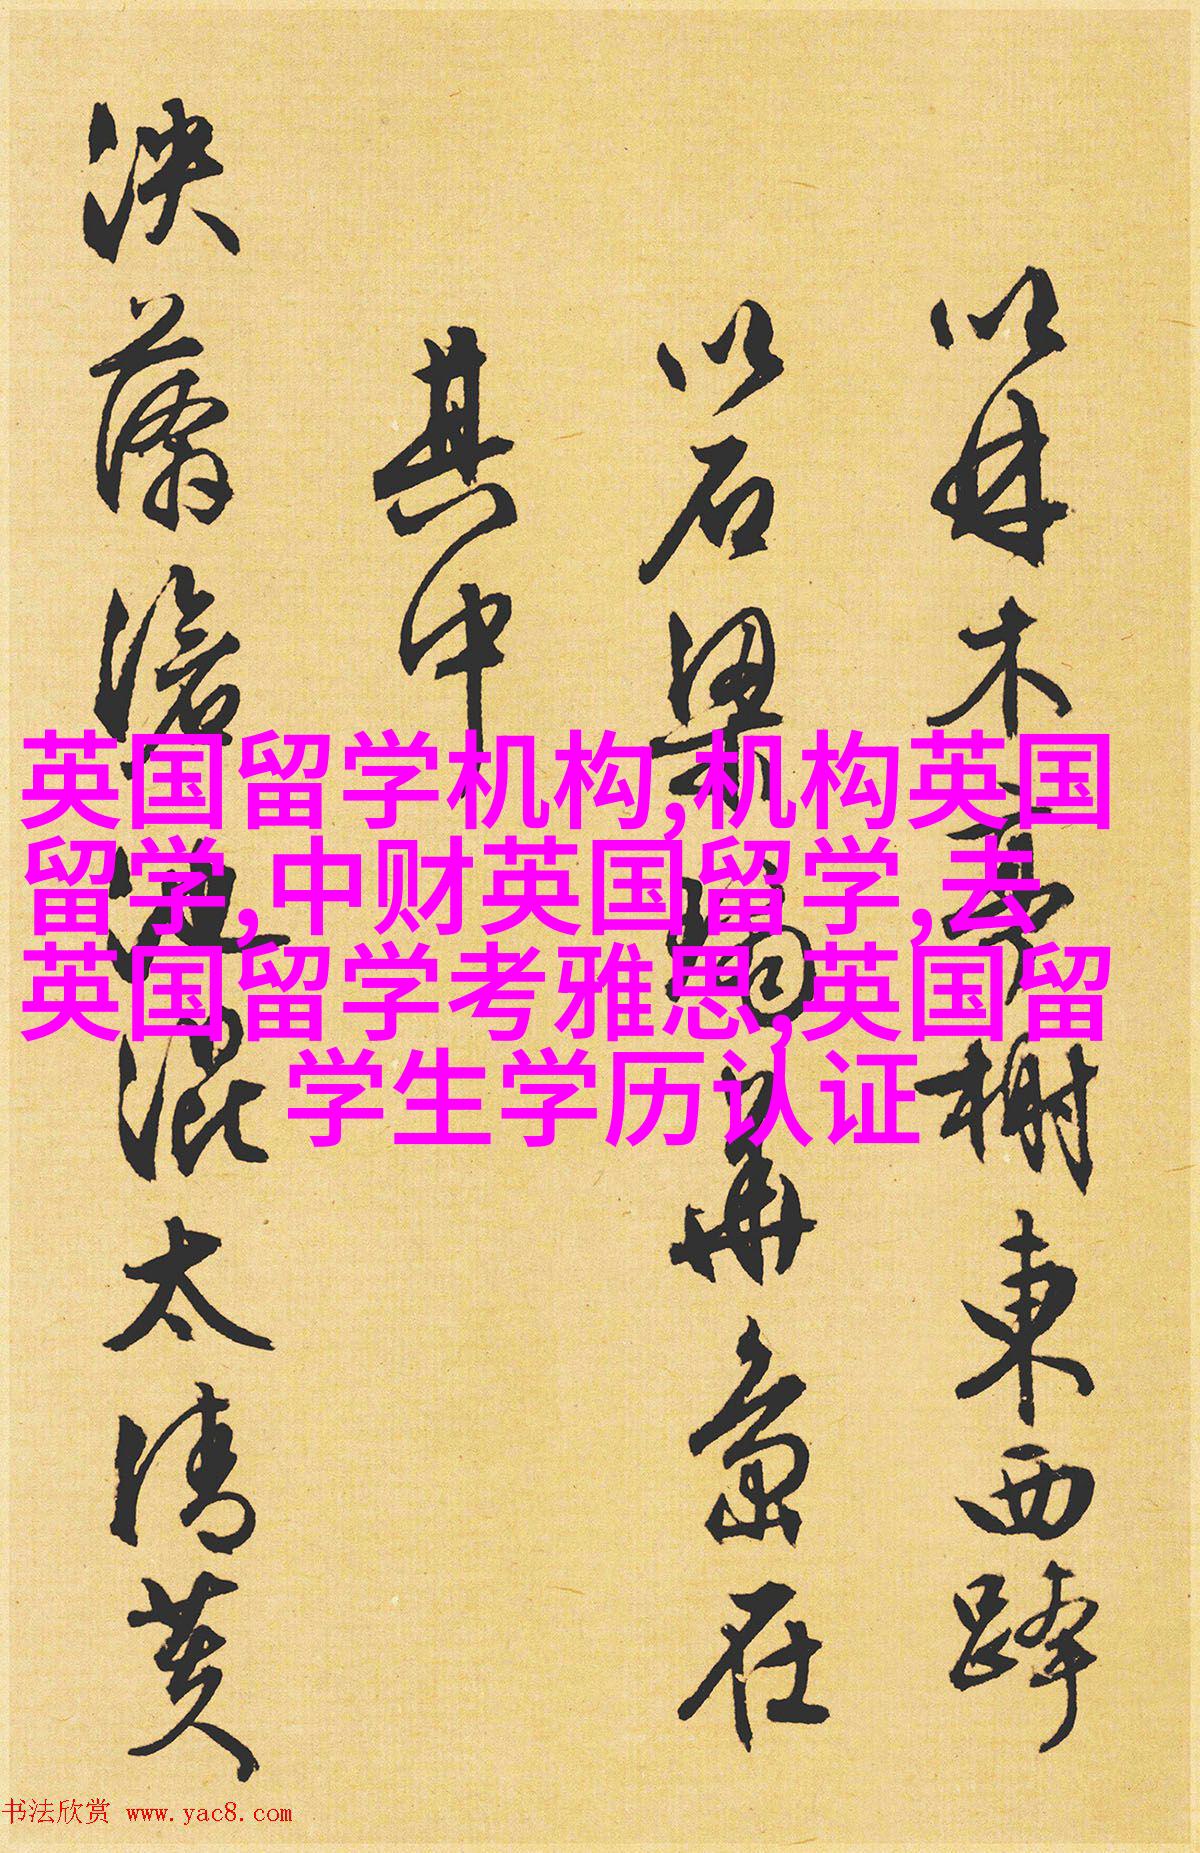 以林木亭榭東西跨
以石梁在
其中
泱澹混太清
英国留学机构,机构英国
留学,中财英国留学,去
英国留学考雅思,英国留
学生学历认证
书法欣赏 www.yac8.com